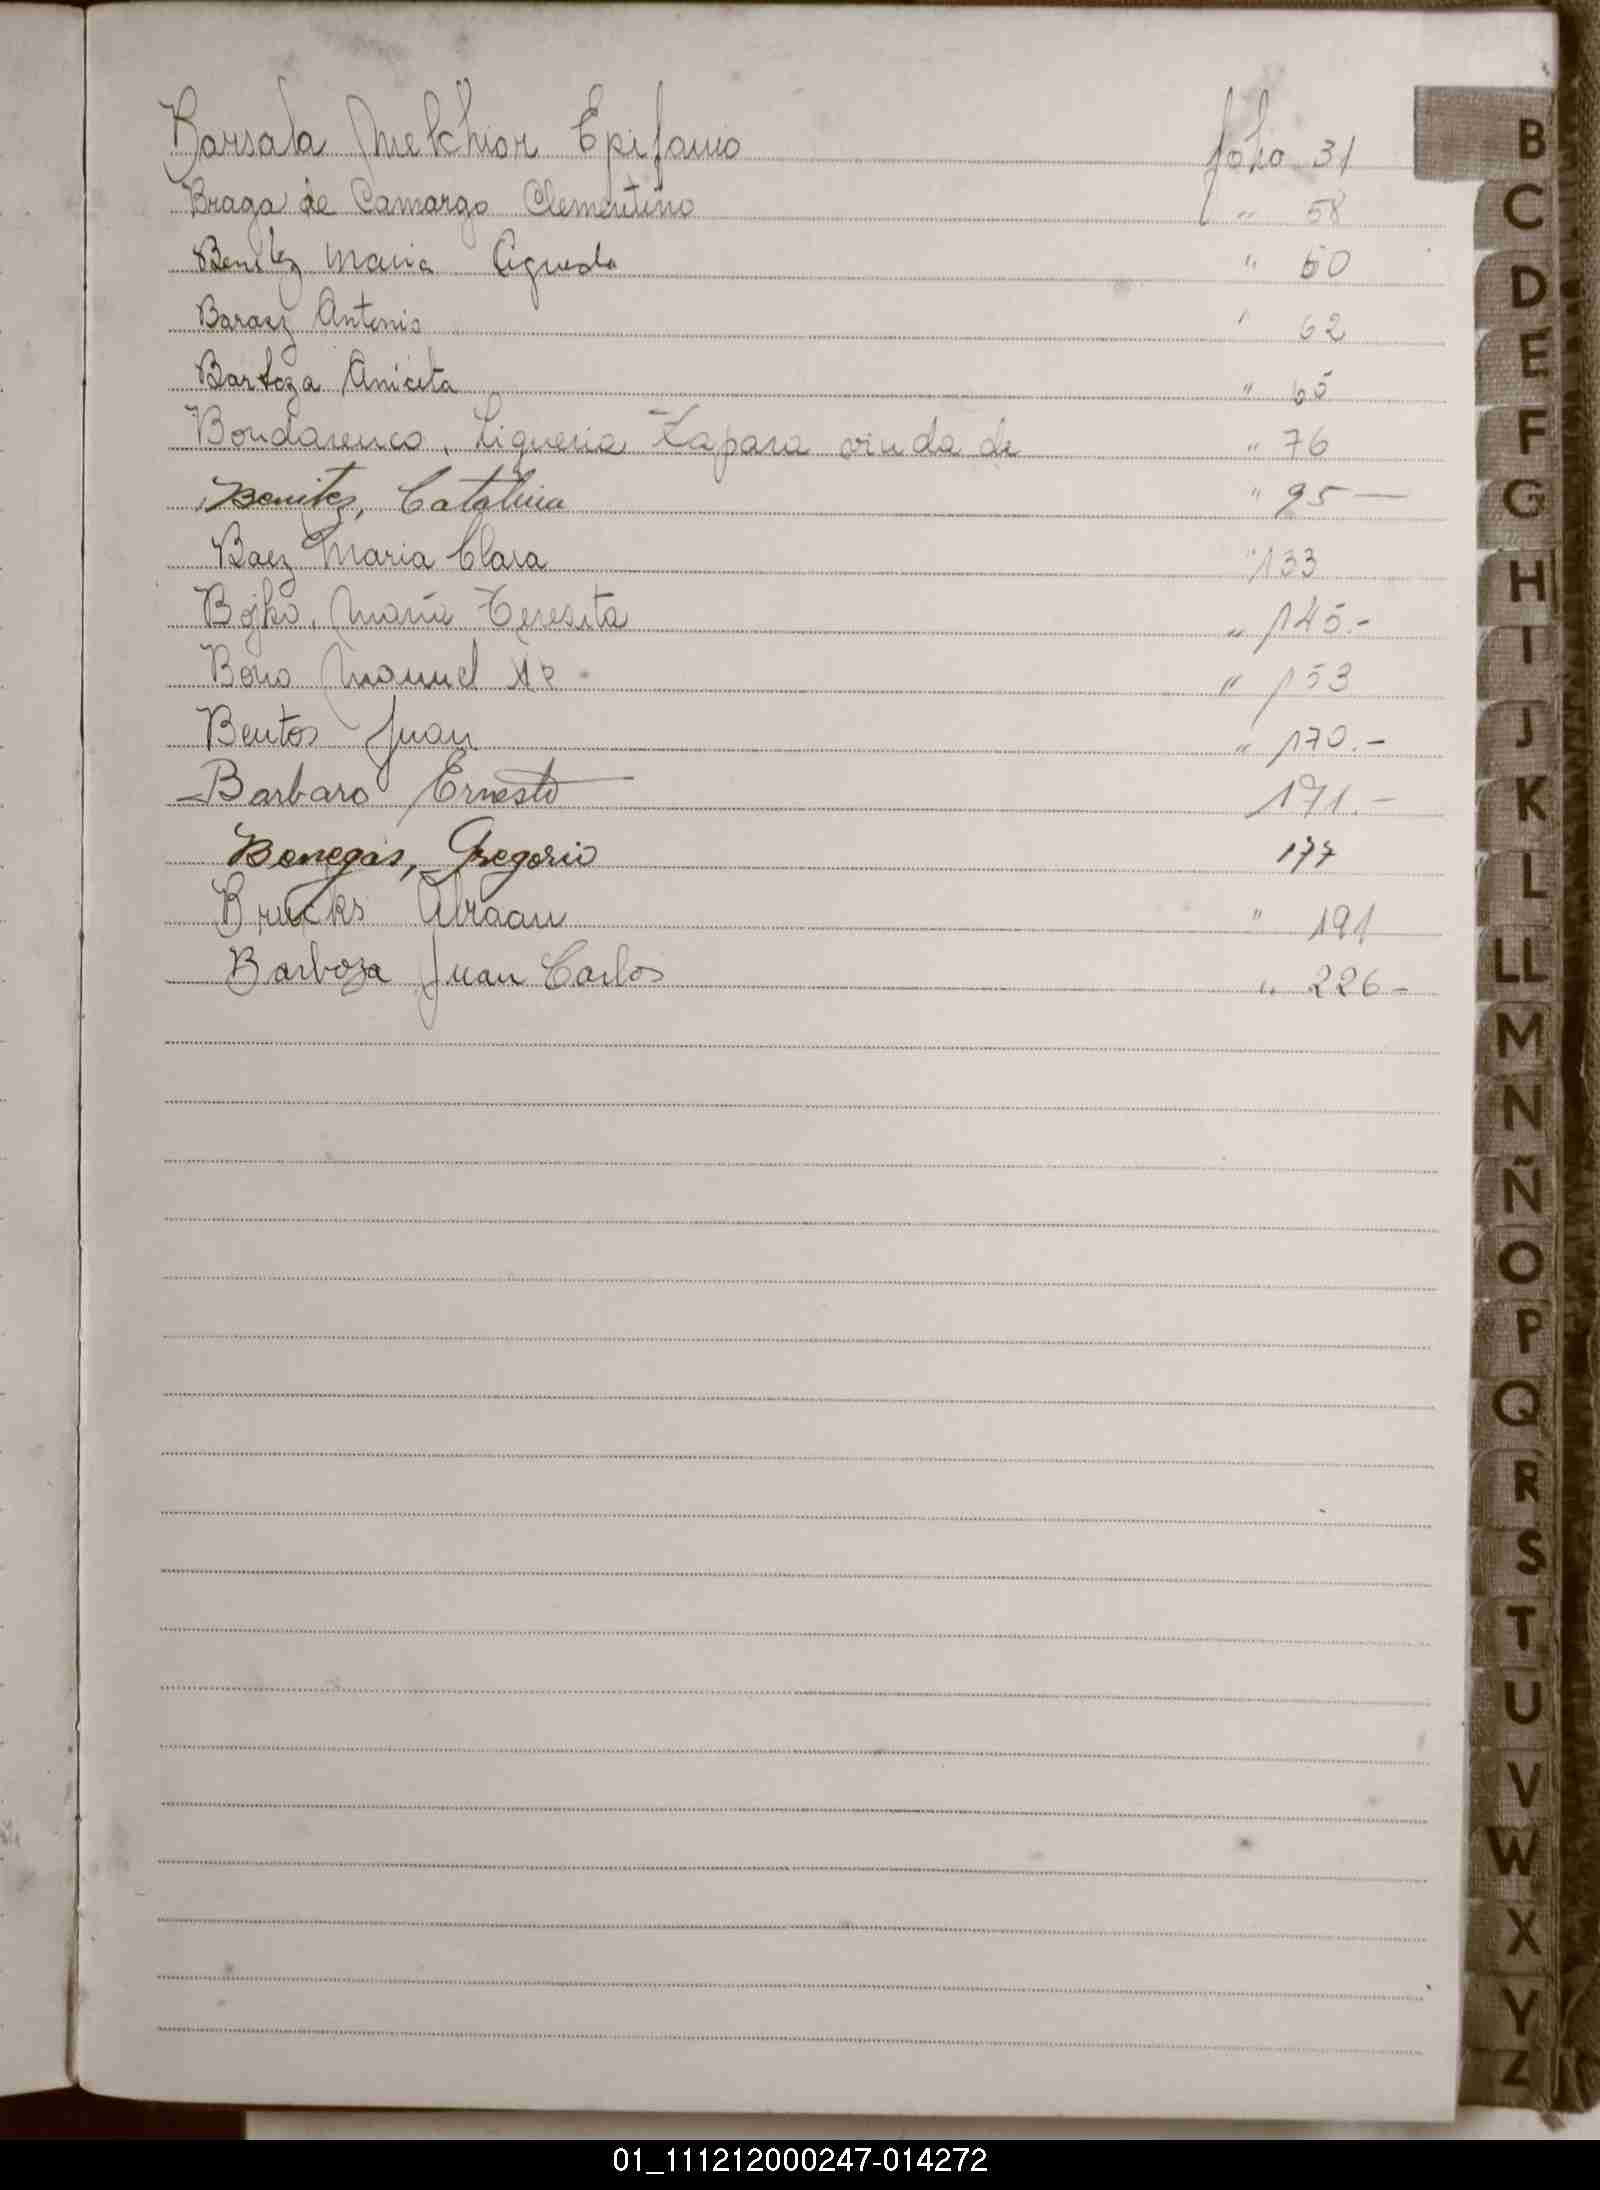 Barsala Melchior Epifanio folio 31
Braga de Camargo Clementino " 58
Benitez Maria Agueda " 60
Baraez Antonio " 62
Bartoza Aniceta " 65
Bondarenco, Ligueria Zapara viuda de " 76
Benitez, Catalina " 95 —
Baez Maria Clara " 133
Bojko, Maria Teresita " 145.-
Bono Manuel " 153
Bentos Juan " 170.-
Barbaro Ernesto 171.-
Benegas, Gregorio 177
Brucks Abraan " 191
Barboza Juan Carlos " 226-
B
C
D
E
F
G
H
I
J
K
L
LL
M
N
Ñ
O
P
Q
R
S
T
U
V
W
X
Y
Z
01_111212000247-014272